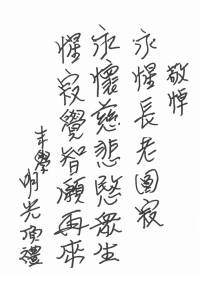 敬悼
永惺長老圓寂
永懷慈悲愍眾生
惺寂覺智願再來
明光頂禮